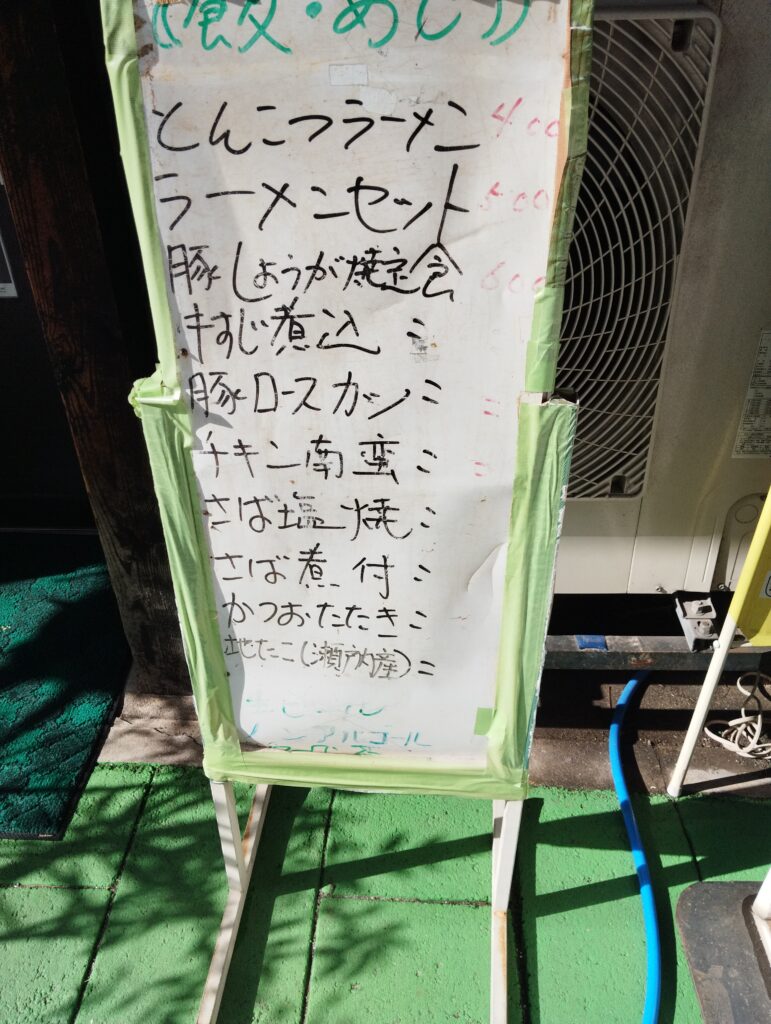 飯・めし
とんこつラーメン 400
ラーメンセット 500
豚しょうが焼定食 600
牛すじ煮込 〃
豚ロースカツ 〃 〃
チキン南蛮 〃 〃
さば塩焼 〃
さば煮付 〃
かつおたたき 〃
地たこ(瀬戸内産) 〃
生ビール
ノンアルコール